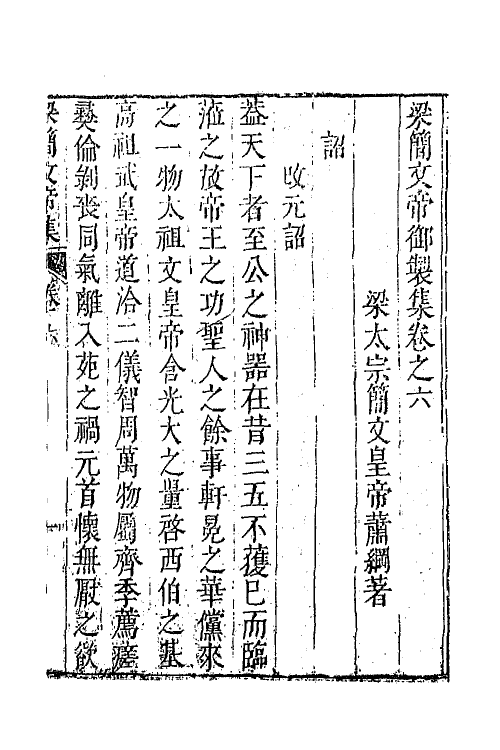 梁簡文帝御製集卷之六
梁太宗簡文皇帝蕭綱著
詔
改元詔
葢天下者至公之神器在昔三五不獲已而臨
蒞之故帝王之功聖人之餘事軒冕之華儻來
之一物太祖文皇帝含光大之量啓西伯之基
高祖武皇帝道洽二儀智周萬物屬齊季薦瘥
彝倫剝喪同氣離入苑之禍元首懷無厭之欲
梁簡文帝集 卷六 一